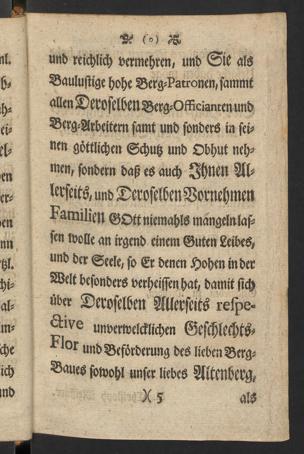 (0)
und reichlich vermehren, und Sie als
Baulustige hohe Berg-Patronen, sammt
allen Deroselben Berg-Officianten und
Berg-Arbeitern samt und sonders in sei-
nen göttlichen Schutz und Obhut neh-
men, sondern daß es auch Jhnen Al-
lerseits, und Deroselben Vornehmen
Familien GOtt niemahls mangeln las-
sen wolle an irgend einem Guten Leibes,
und der Seele, so Er denen Hohen in der
Welt besonders verheissen hat, damit sich
über Deroselben Allerseits respe-
ctive unverwelcklichen Geschlechts-
Flor und Beförderung des lieben Berg-
Baues sowohl unser liebes Altenberg,
)( 5 als